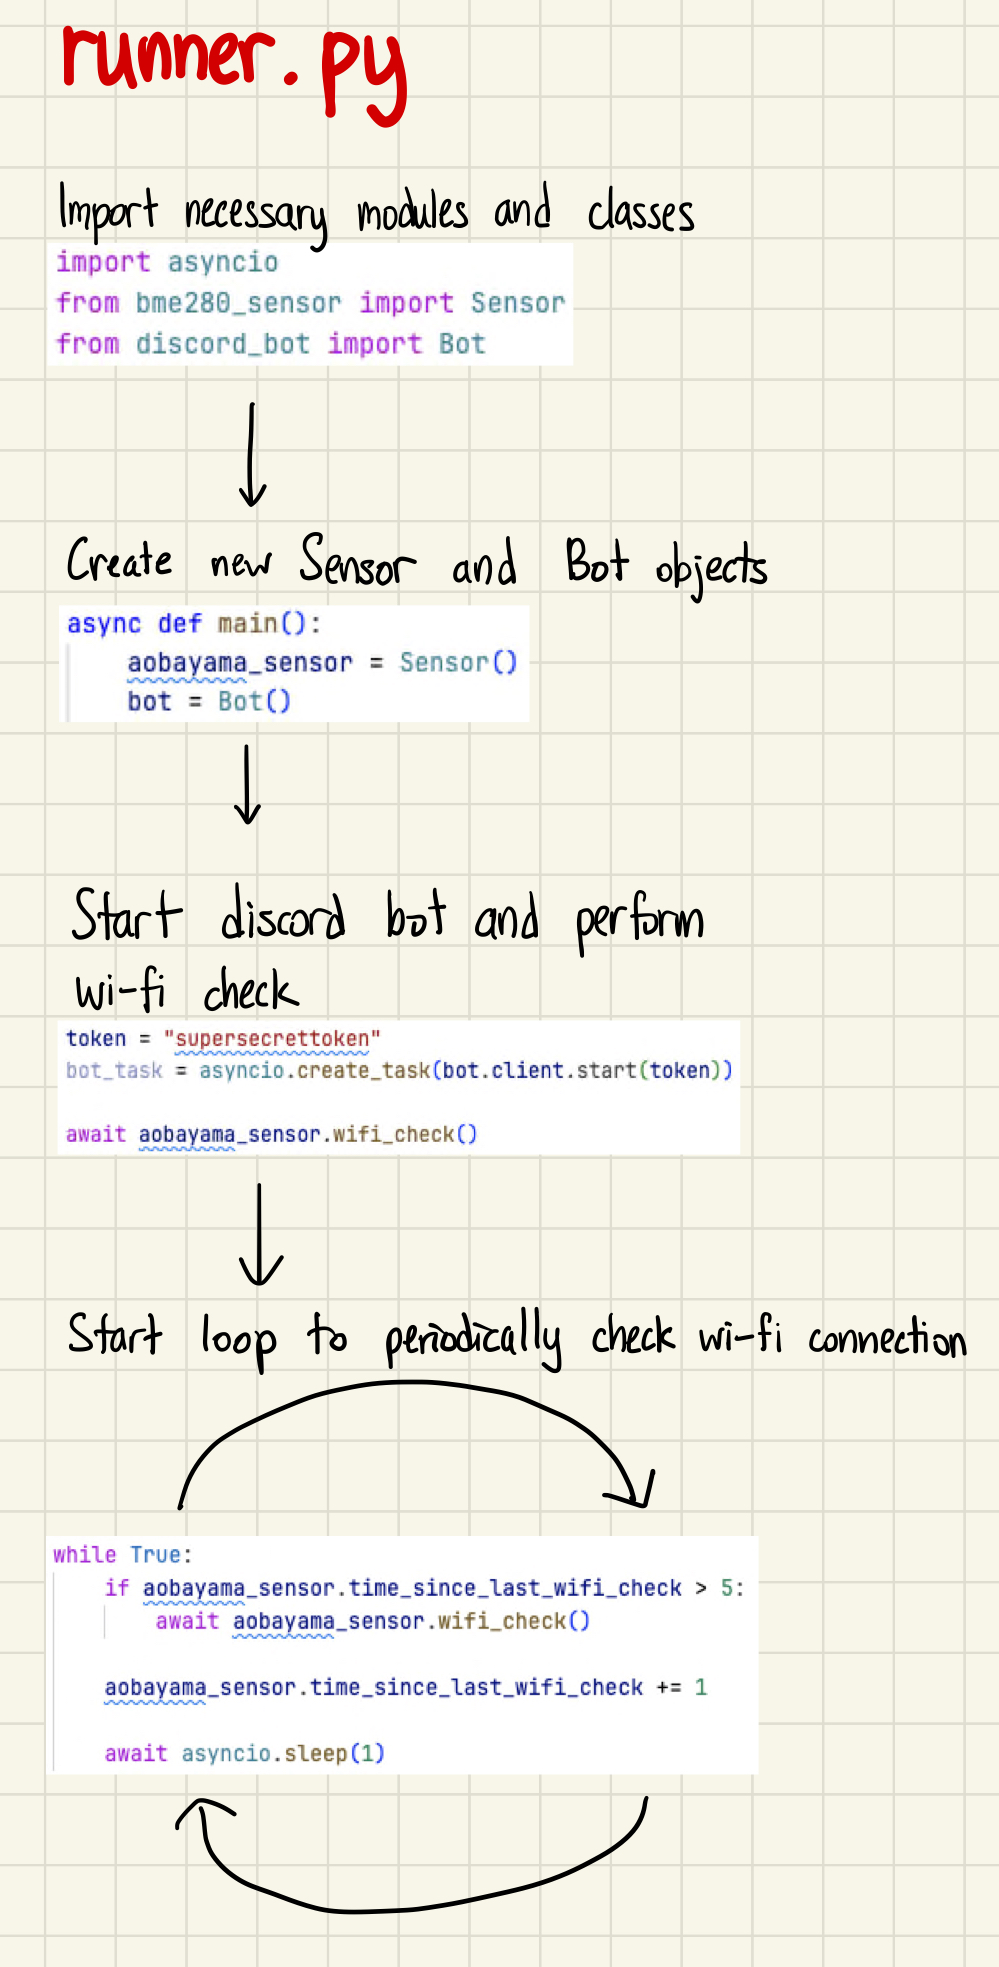 runner.py
Import necessary modules and classes
import asyncio
from bme280_sensor import Sensor
from discord_bot import Bot
Create new Sensor and Bot objects
async def main():
aobayama_sensor = Sensor()
bot = Bot()
Start discord bot and perform
wi-fi check
token = "supersecrettoken"
bot_task = asyncio.create_task(bot.client.start(token))
await aobayama_sensor.wifi_check()
Start loop to periodically check wi-fi connection
while True:
if aobayama_sensor.time_since_last_wifi_check > 5:
await aobayama_sensor.wifi_check()
aobayama_sensor.time_since_last_wifi_check += 1
await asyncio.sleep(1)